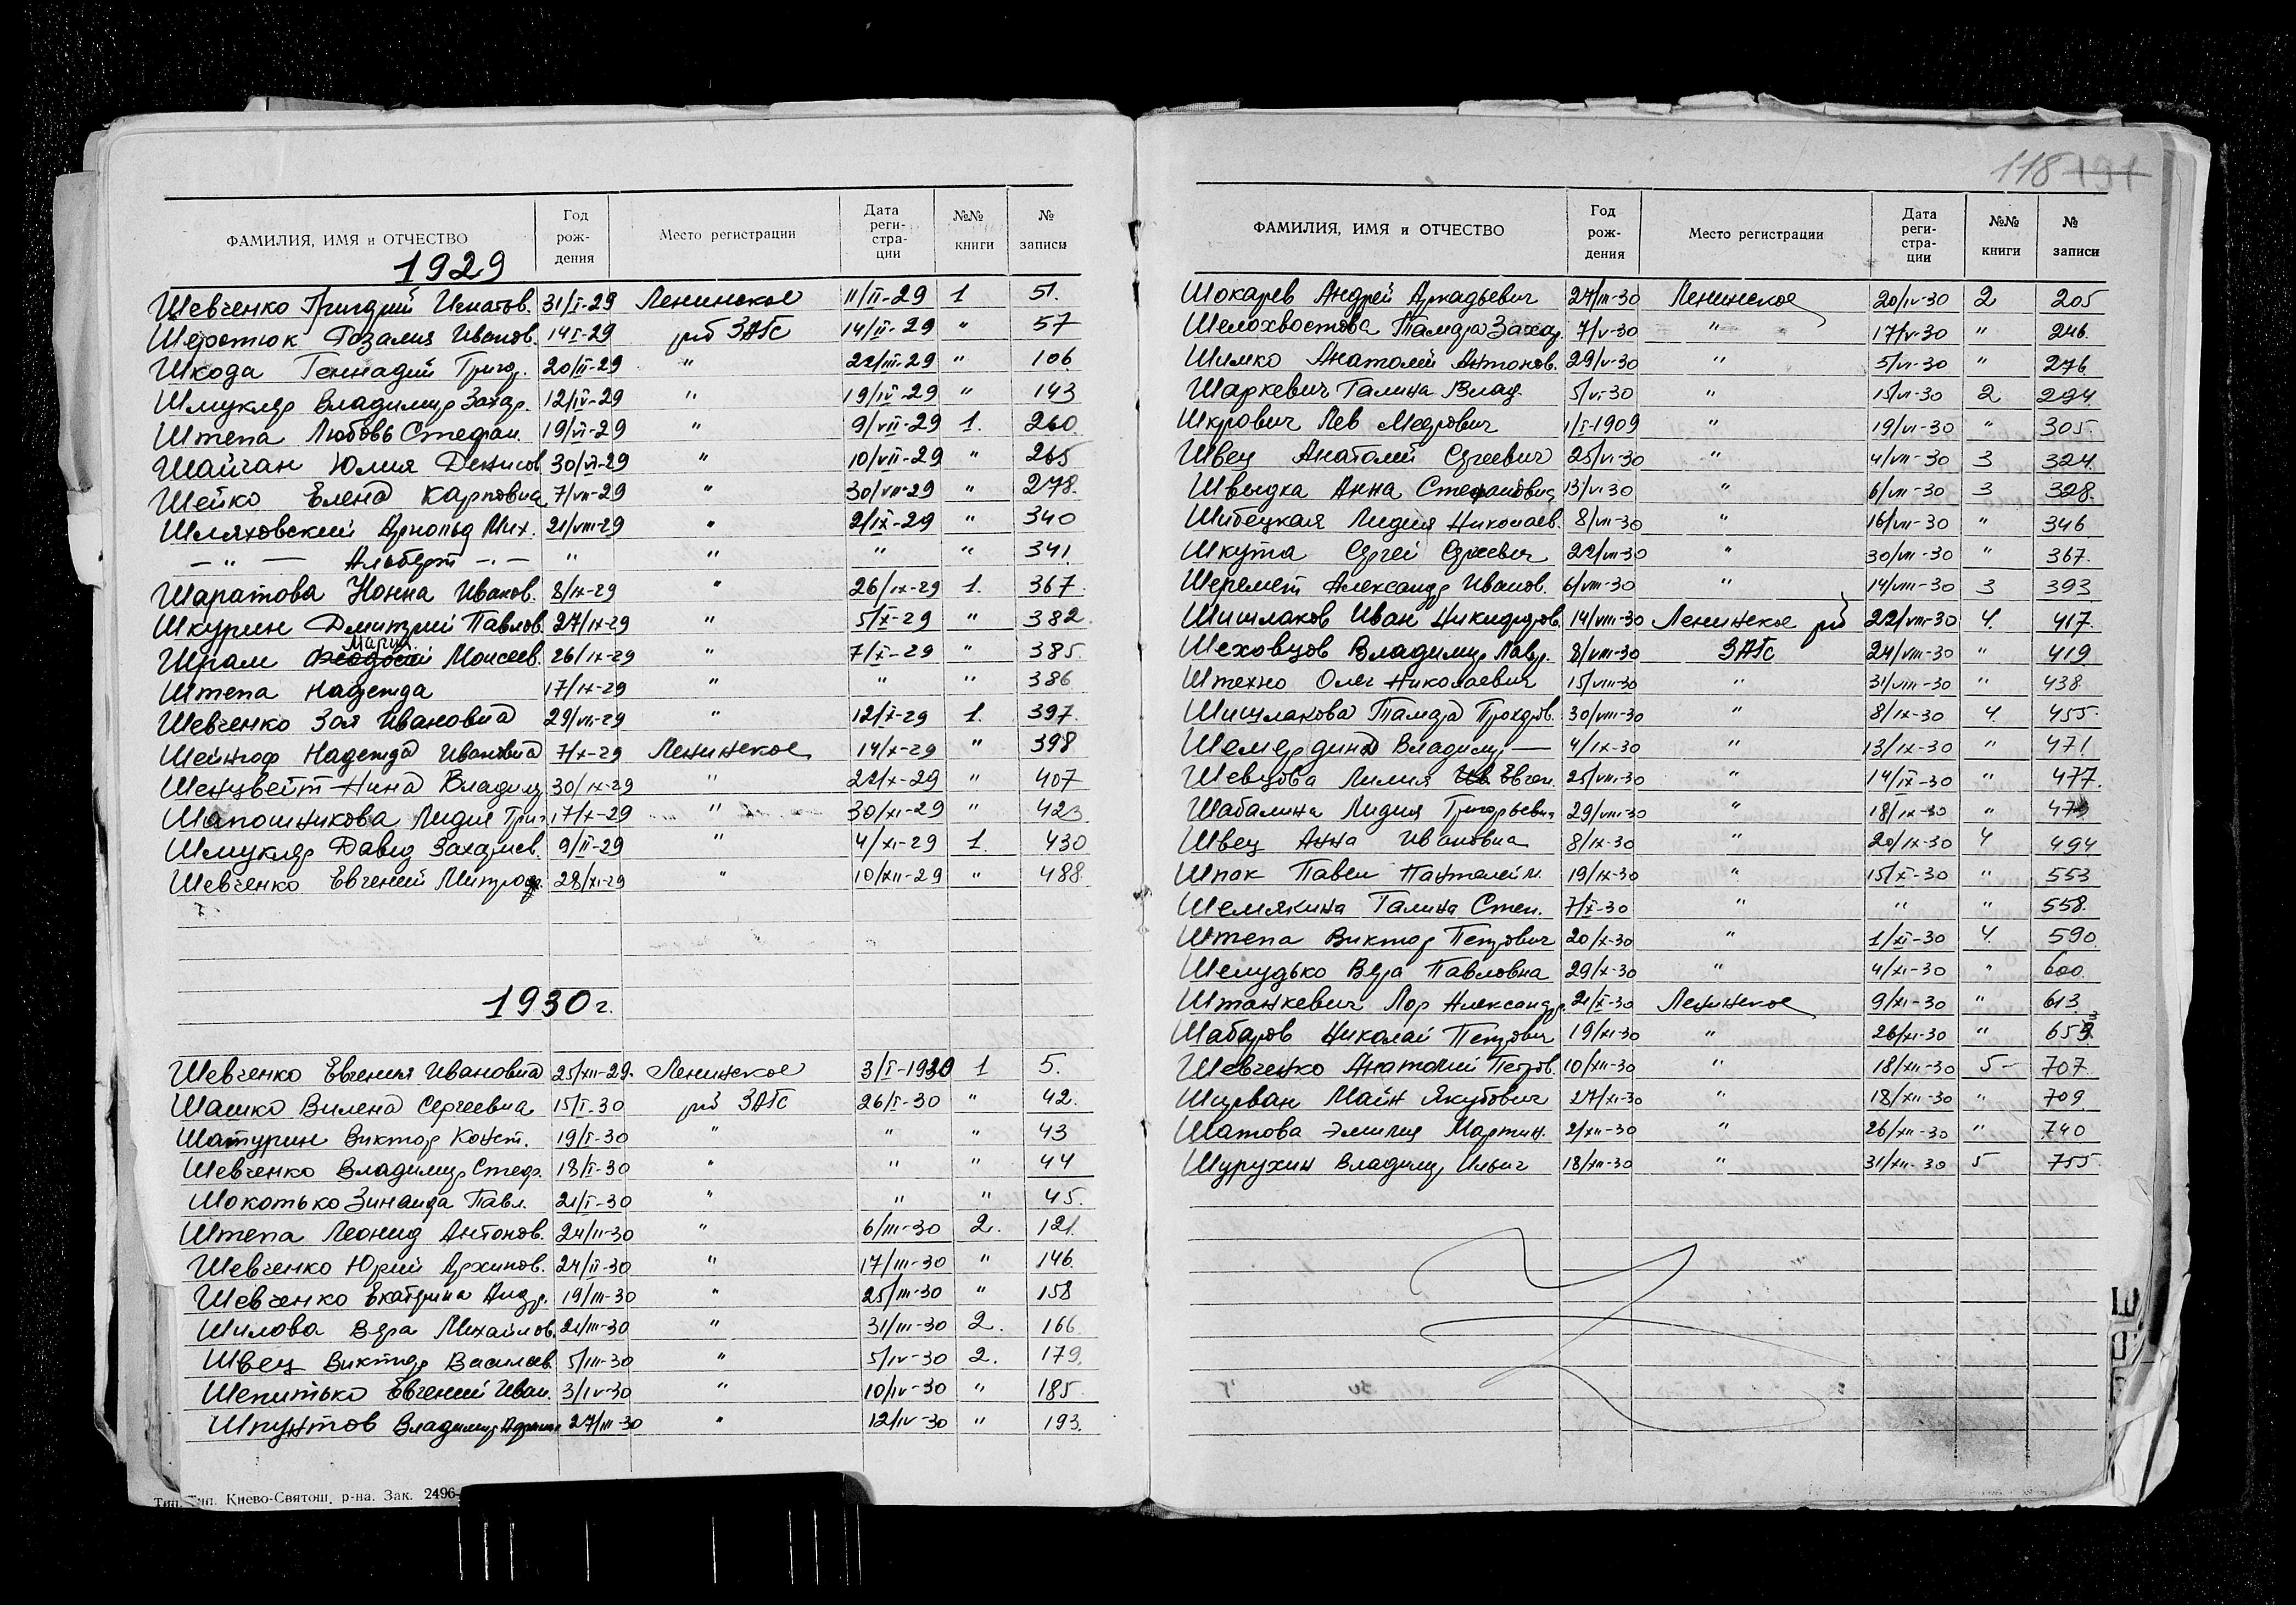 ФАМИЛИЯ, ИМЯ и ОТЧЕСТВО Год рождения Место регистрации Дата регистрации №№ книги № записи
1929
Шевченко Григорий Игнатов. 31/I-29 Ленинское 11/II-29 1 51.
Розалия Иванов. 14/I-29 рб ЗАГс 14/II-29 " 57
Шкода Геннадий Григор. 20/II-29 " 22/III-29 " 106
Шмукляр Владимир Захар. 12/IV-29 " 19/IV-29 " 143
Штепа Любовь Стефан. 19/VI-29 " 9/VII-29 1. 260
Шайчан Юлия Денисов 30/VI-29 " 10/VII-29 " 265
Шейко Елена Карповна 7/VII-29 " 30/VII-29 " 278.
Шляховский Арнольд Мих. 21/VIII-29 " 2/IX-29 " 340
— " — Альберт —"— " " " " 341
Шаратова Нонна Иванов. 8/IX-29 " 26/IX-29 1. 367
Шкурин Дмитрий Павлов. 27/IX-29 " 5/X-29 " 382.
Шрам Мария Моисеев. 26/IX-29 " 7/X-29 " 385.
Штепа Надежда 17/IX-29 " " " 386
Шевченко Зоя Ивановна 29/VII-29 " 12/X-29 1. 397.
Надежда Ивановна 7/X-29 Ленинское 14/X-29 " 398
Шенцвейт Нина Владим 30/IX-29 " 22/X-29 " 407
Шапошникова Лидия Григ 17/X-29 " 30/XI-29 " 423
Шмукляр Давид Захариев. 9/II-29 " 4/XI-29 1. 430
Шевченко Евгений Митроф. 28/XI-29 " 10/XII-29 " 488
1930 г.
Шевченко Евгения Ивановна 25/XII-29. Ленинское 3/I-1930 1 5.
Шашко Вилена Сергеевна 15/I-30 рб ЗАГс 26/I-30 " 42.
Шатурин Виктор Конст. 19/I-30 " " " 43
Шевченко Владимир Стеф. 18/I-30 " " " 44
Шокотько Зинаида Павл. 21/I-30 " " " 45.
Штепа Леонид Антонов. 24/II-30 " 6/III-30 2. 121.
Шевченко Юрий Архипов. 24/II-30 " 17/III-30 " 146.
Шевченко Екатерина Андр. 19/III-30 " 25/III-30 " 158
Шилова Вера Михайлов. 21/III-30 " 31/III-30 2. 166.
Швец Виктор Васильев. 5/III-30 " 5/IV-30 2. 179.
Шепитько Евгений Иван. 3/IV-30 " 10/IV-30 " 185.
Шпунтов Владимир 27/III-30 " 12/IV-30 " 193.
Тип. Киево-Святош. р-на. Зак. 2496
118 191
ФАМИЛИЯ, ИМЯ и ОТЧЕСТВО Год рождения Место регистрации Дата регистрации №№ книги № записи
Шокарев Андрей Аркадьевич 27/III-30 Ленинское 20/IV-30 2 205
Шелохвостова Тамара Захар. 7/V-30 " 17/V-30 " 246.
Шимко Анатолий Антонов. 29/V-30 " 5/VI-30 " 276.
Шаркевич Галина Влад. 5/VI-30 " 15/VI-30 2 294.
Шкрович Лев Меерович 1/I-1909 " 19/VI-30 " 305.
Швец Анатолий Сергеевич 25/VI-30 " 4/VII-30 3 324.
Швыдка Анна Стефановна 13/VI-30 " 6/VII-30 3 328.
Шибецкая Лидия Николаев. 8/VII-30 " 16/VII-30 " 346.
Шкута Сергей Сергеевич 22/VII-30 " 30/VII-30 " 367.
Шеремет Александр Иванов. 6/VIII-30 " 14/VIII-30 3 393
Шишлаков Иван Никифоров. 14/VIII-30 Ленинское рб 22/VIII-30 4. 417.
Шеховцов Владимир Лавр. 8/VIII-30 ЗАГс 24/VIII-30 " 419
Штехно Олег Николаевич 15/VIII-30 " 31/VIII-30 " 438.
Шишлакова Тамара Прохоров. 30/VIII-30 " 8/IX-30 4. 455.
Владимир — 4/IX-30 " 13/IX-30 " 471
Шевцова Лилия Евген. 25/VIII-30 " 14/IX-30 " 477.
Шабалина Лидия Григорьевна 29/VIII-30 " 18/IX-30 " 479
Швец Анна Ивановна 8/IX-30 " 20/IX-30 4 494
Шпак Павел Пантелейм. 19/IX-30 " 15/X-30 " 553
Шемякина Галина Степ. 7/X-30 " " " 558.
Штепа Виктор Петрович 20/X-30 " 1/XI-30 4. 590.
Шелудько Вера Павловна 29/X-30 " 4/XI-30 " 600.
Штанкевич Лор Александр. 21/X-30 Ленинское 9/XI-30 " 613
Шабаров Николай Петрович 19/XI-30 " 26/XI-30 " 653.
Шевченко Анатолий Петров. 10/XII-30 " 18/XII-30 5- 707.
Шурван Майн Якубович 27/XI-30 " 18/XII-30 " 709.
Шатова Эмилия Мартин. 2/XII-30 " 26/XII-30 " 740
Шурухин Владимир Ильич 18/XII-30 " 31/XII-30 5 755